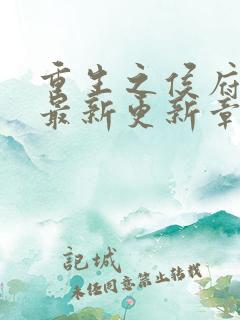 重生之侯府
最新更新章
記城
未经同意禁止转载